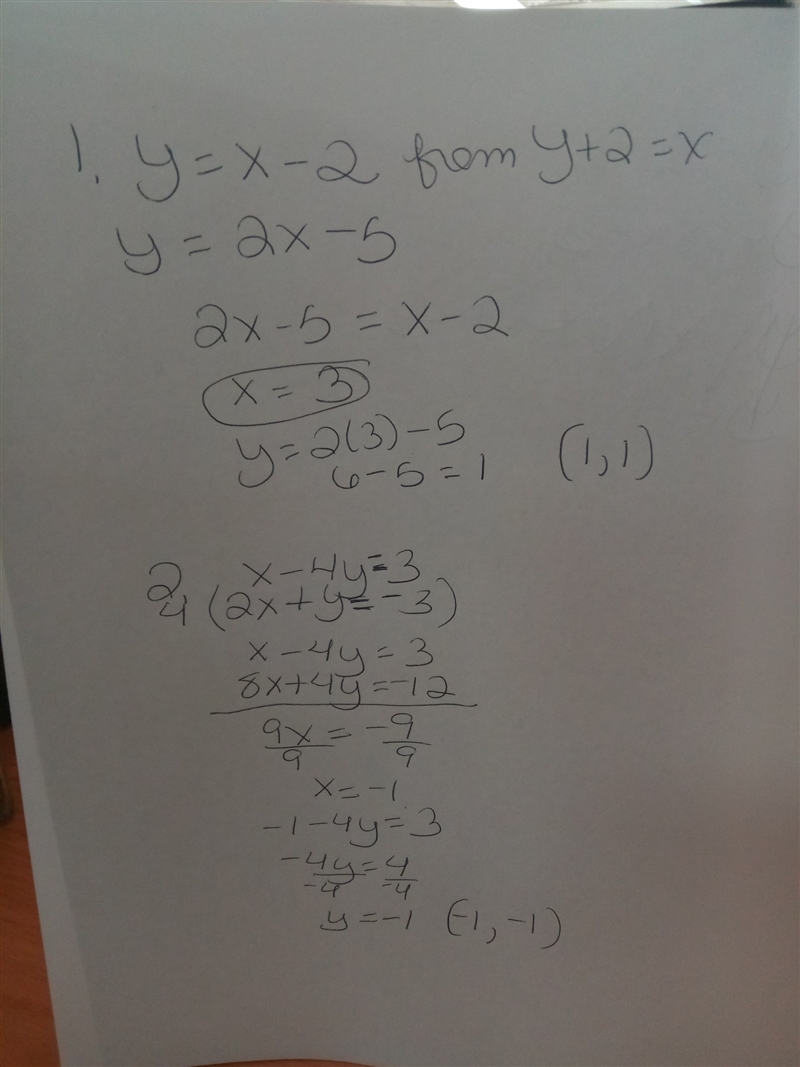 1. y = x - 2 from y + 2 = x
y = 2x - 5
2x - 5 = x - 2
x = 3
y = 2(3) - 5
6 - 5 = 1 (1, 1)
2 x - 4y = 3
4 (2x + y = -3)
x - 4y = 3
8x + 4y = -12
9x/9 = -9/9
x = -1
-1 - 4y = 3
-4y/-4 = 4/-4
y = -1 (-1, -1)